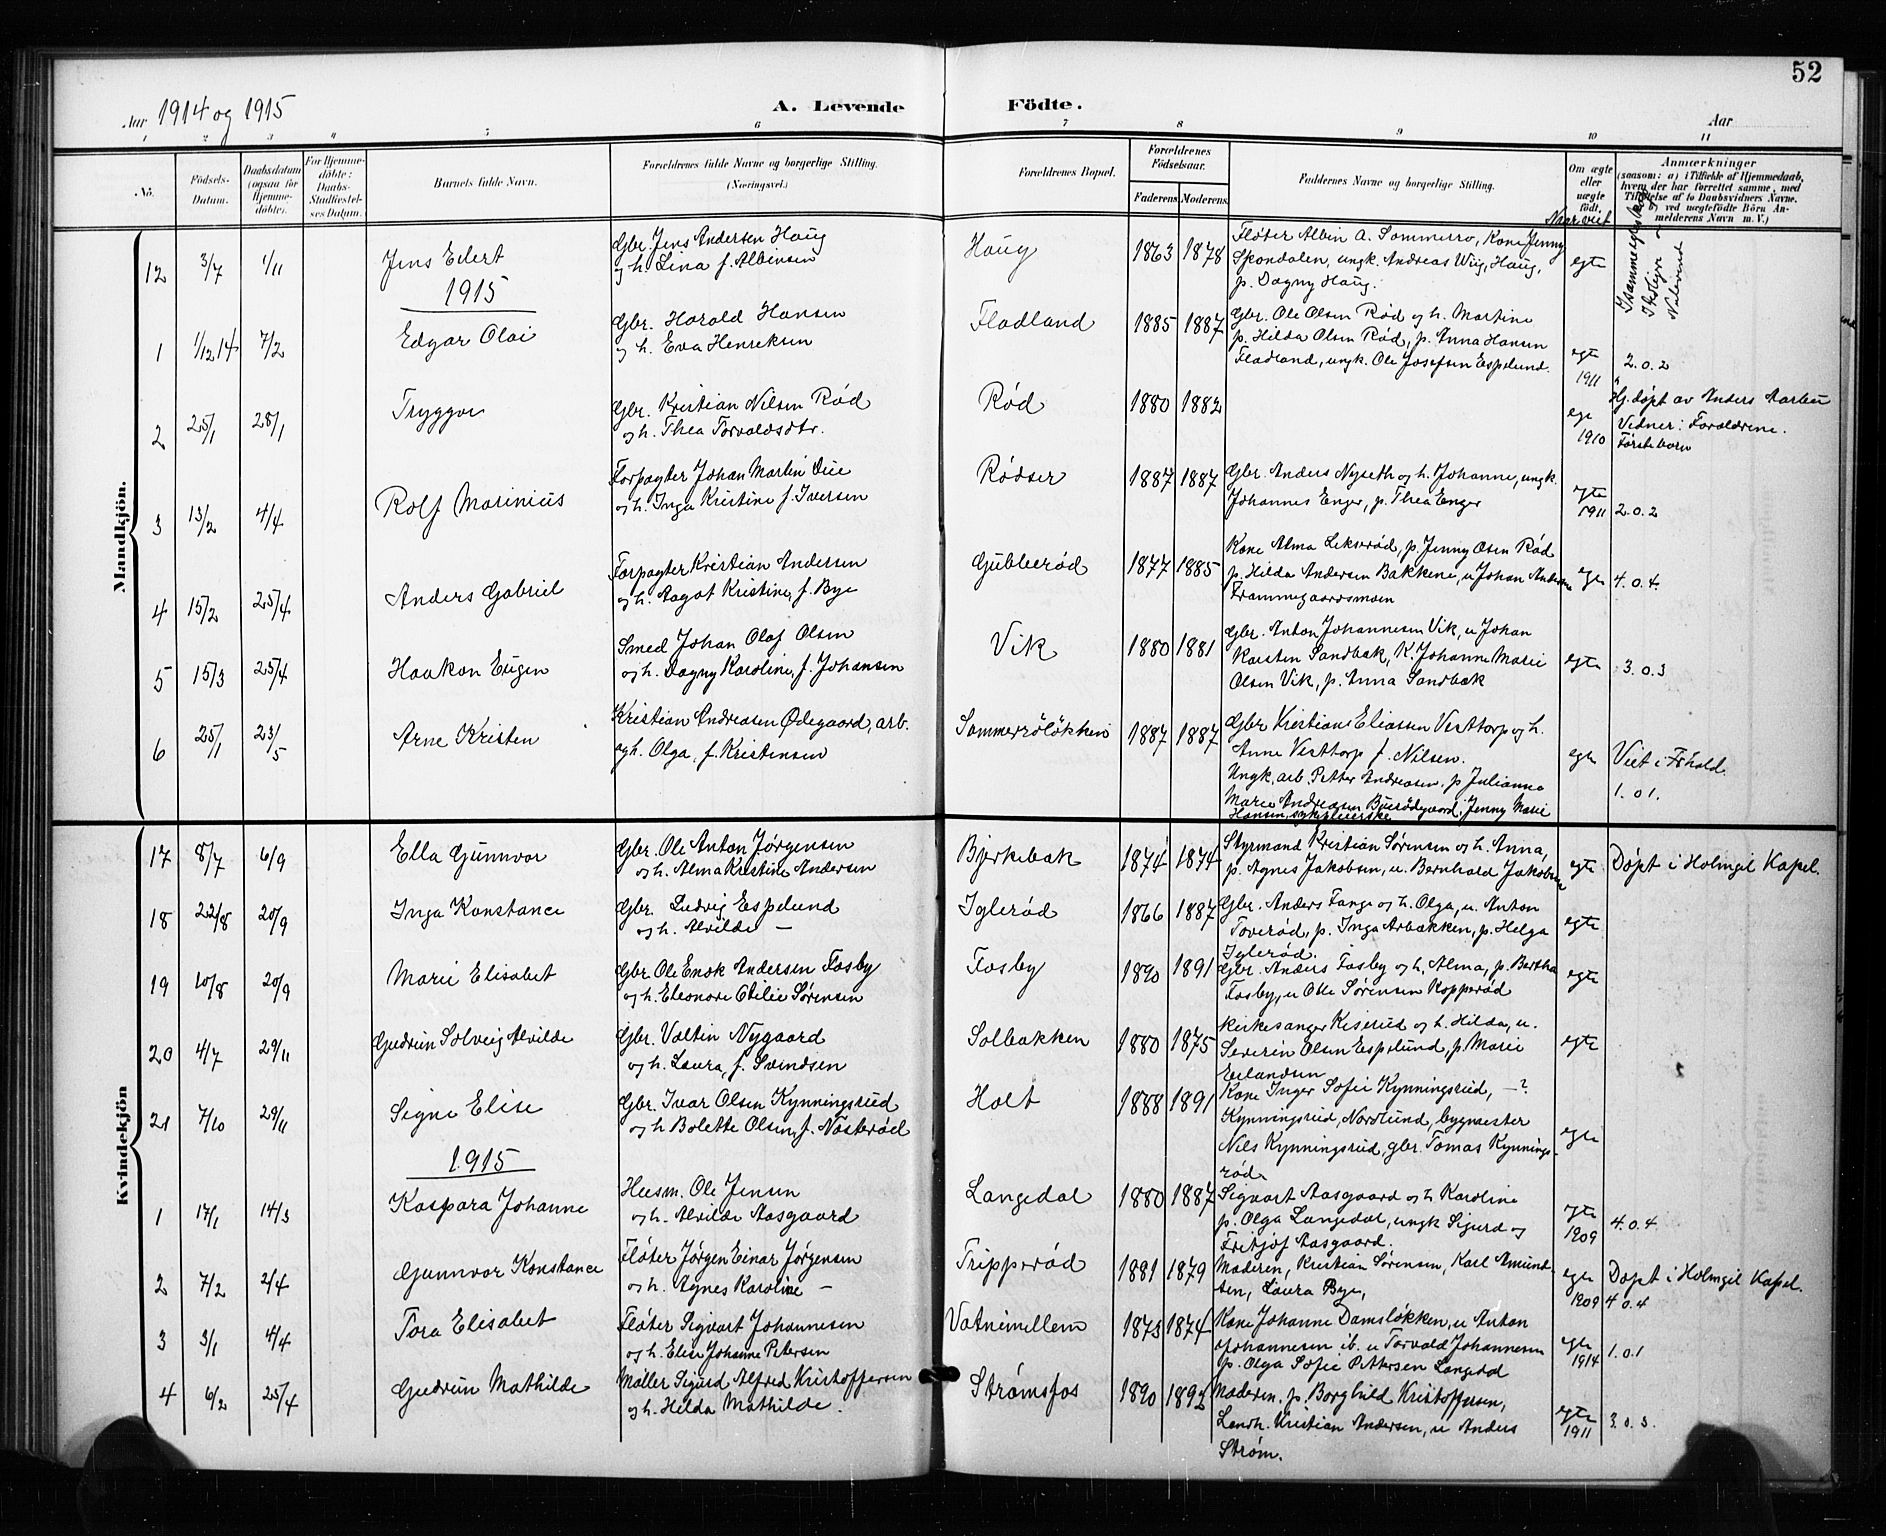 52
Aar 1914 og 1915
A. Levende Födte.
Aar
1 2 3 4 5 6 7 8 9 10 11
No.
Födsels-Datum.
Daabsdatum (ogsaa for Hjemme-döbte).
For Hjemme-döbte: Daabs-Stadfæstel-ses Datum.
Barnets fulde Navn.
Forældrenes fulde Navne og borgerlige Stilling. (Næringsvei.)
Forældrenes Bopæl.
Forældrenes Födselsaar.
Faderens Moderens
Faddernes Navne og borgerlige Stilling.
Om ægte eller uægte födt.
Naar viet
Anmærkninger
(saasom: a) i Tilfælde af Hjemmedaab, hvem der har forrettet samme, med Tilføielse af to Daabsvidners Navne.
b) ved uægtefödte Börn An-melderens Navn m. V.)
Mandkjön.
12 3/7 1/11 Jens Eilert
Gbr. Jens Andersen Haug
og h. Lina f. Albinsen
Haug 1863 1878
Fløter Albin A. Sommerro, Kone Jenny
Skondalen, ungk. Andreas Wiig, Haug,
p. Dagny Haug.
egte
1915
1 1/12 14 7/2 Edgar Olai
Gbr. Harald Hansen
og h. Eva Henriksen
Fladland 1885 1887
Gbr. Ole Olsen Rød og h. Martine
p. Hilda Olsen Rød, p. Anna Hansen
Fladland, ungk. Ole Josefsen Espelund.
egte 1911 2.o.2
2 25/1 28/1 Tryggve
Gbr. Kristian Nilsen Rød
og h. Thea Torvaldsdtr.
Rød 1880 1882
egte 1910
Hj. døpt av Anders Aarbu
Vidner: Forældrene.
Førsteborn
3 13/2 4/4 Rolf Marinius
Forpagter Johan Martin
og h. Inga Kristine f. Iversen
Rødser 1887 1887
Gbr. Anders Nyseth og h. Johanne, ungk.
Johannes Enger, p. Thea Enger
egte 1911 2.o.2
4 15/2 25/4 Anders Gabriel
Forpagter Kristian Andersen
og h. Aagot Kristine, f. Bye
Gubberød 1877 1885
Kone Alma Lekserød, p. Jenny Olsen Rød
p. Hilda Andersen Bakkene, u Johan Andersen
Trammegaardsmoen
egte 4.o.4.
5 15/3 25/4 Haakon Eugen
Smed Johan Olaf Olsen
og h. Dagny Karoline, f. Johansen
Vik 1880 1881
Gbr. Anton Johannesen Vik, u Johan
Karsten Sandbæk, K. Johanne Marie
Olsen Vik, p. Anna Sandbæk
egte 3.o.3
6 25/1 23/5 Arne Kristen
Kristian Andreasen Ødegaard, arb.
og h. Olga, f. Kristensen
Sommerröløkken 1887 1887
Gbr Kristian Eliassen Vesttorp og h.
Anne Vesttorp f. Nilsen.
Ungk. arb Petter Andreasen, p Julianne
Marie Andreasen Buerødgaard, Jenny Marie
Hansen, sykepleierske
egte
Viet i Frhald.
1.o1.
Kvindekjön
17 8/7 6/9 Ella Gunnvor
Gbr. Ole Anton Jørgensen
og h. Alma Kristine Andersen
Bjerkebæk 1874 1874
Styrmand Kristian Sørensen og h. Anna,
p. Agnes Jakobsen, u. Bernhard Jakobsen
egte Døpt i Holmgil Kapel.
18 22/8 20/9 Inga Konstance
Gbr. Ludvig Espelund
og h. Alvilde —
Iglerød 1866 1887
Gbr. Anders Tange og h. Olga, u. Anton
Toverød, p. Inga Arbækken, p. Helga
Iglerød.
egte
19 10/8 20/9 Marie Elisabet
Gbr. Ole Enok Andersen Fosby
og h. Eleonore Otilie Sørensen
Fosby 1890 1891
Gbr. Anders Fosby og h. Alma, p. Bertha
Fosby, u Otto Sørensen Kopperød
egte
20 4/7 29/11 Gudrun Solveig Alvilde
Gbr. Valtin Nygaard
og h. Laura, f. Svendsen
Solbakken 1880 1875
Kirkesanger Kiserud og h. Hilda, u.
Severin Olsen Espelund, p. Marie
Erlandsen
egte
21 7/10 29/11 Signe Elise
Gbr. Ivar Olsen Kynningsrud
og h Bolette Olsen, f. Nøsterød
Holt 1888 1891
Kone Inger Sofie Kynningsrud, —?
Kynningsrud, Nordlund, bygmester
Nils Kynningsrud, gbr. Tomas Kynnings-
rød
egte
1915
1 17/1 14/3 Kaspara Johanne
Husm. Ole Jensen
og h. Alvilde Aasgaard
Langedal 1880 1887
Sigvart Aasgaard og h Karoline
p. Olga Langedal, ungk Sigurd og
Fritjof Aasgaard.
egte 1909 4.o.4
2 7/2 2/4 Gunnvor Konstance
Fløter Jørgen Einar Jørgensen
og h. Agnes Karoline —
Tripperød 1881 1879
Moderen, Kristian Sørensen, Karl Amund-
sen, Laura Bye,
egte 1909 Døpt i Holmgil Kapel.
4.o.4
3 3/1 4/4 Tora Elisabet
Fløter Sigvart Johannesen
og h. Elise Johanne Petersen
Vatnemellem 1873 1874
Kone Johanne Damsløkken, u Anton
Johannesen ib. u Torvald Johannesen
p. Olga Sofie Pettersen Langedal
egte 1914 1.o.1
4 6/2 25/4 Gudrun Mathilde
Møller Sigurd Alfred Kristoffersen
og h. Hilda Mathilde.
Strømsfos 1890 1892
Moderen, p. Borghild Kristoffersen,
Landh. Kristian Andersen, u Anders
Strøm.
egte 1911 3.o.3.